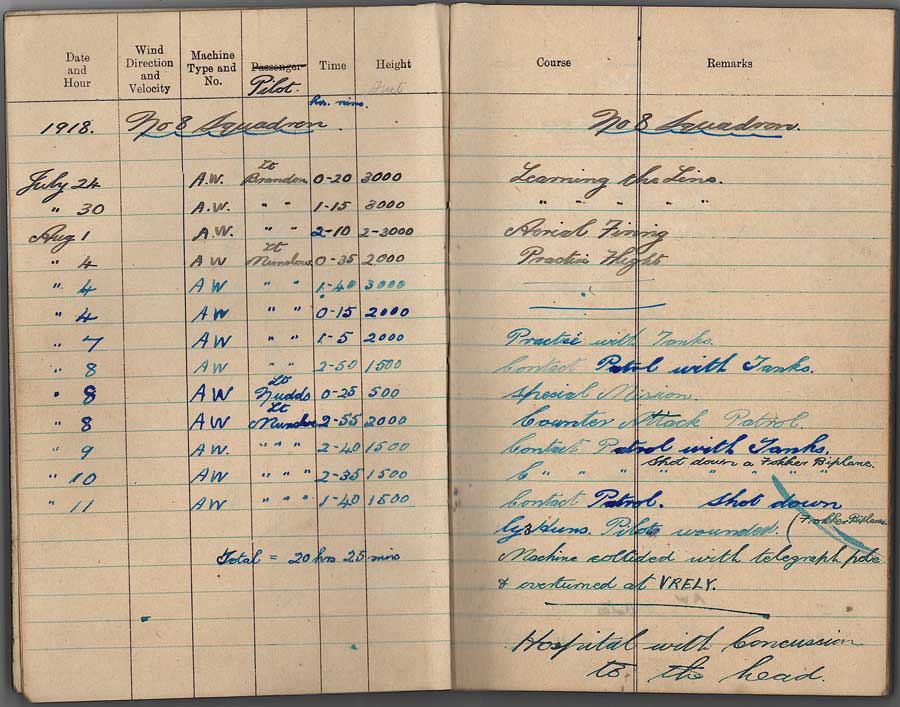 Date and Hour Wind Direction and Velocity Machine Type and No. Passenger Pilot. Time Height Course Remarks
hrs. mins.
1918. No 8 Squadron. No 8 Squadron.
Lt
July 24 A.W. Brandon 0-20 3000 Learning the Line.
" 30 A.W. " " 1-15 3000 " " " " "
Aug 1 A.W. " " 2-10 2-3000 Aerial Firing
Lt
" 4 A W Munslow. 0-35 2000 Practice Flight
" 4 A W " " 1-40 3000
" 4 A W " " 0-15 2000
" 7 A W " " 1-5 2000 Practice with Tanks.
" 8 A W " " 2-50 1500 Contact Patrol with Tanks.
Lt
" 8 A W Nudds 0-25 500 Special Mission.
Lt
" 8 A W Munslow 2-55 2000 Counter Attack Patrol.
" 9 A W. " " " 2-40 1500 Contact Patrol with Tanks.
Shot down a Fokker Biplane.
" 10 A W " " " 2-35 1500 C " " " " " "
" 11 A W " " " 1-40 1500 Contact Patrol. Shot down
(Fokker Biplanes
by 3 Huns. Pilot wounded.
Total = 20 hrs 25 mins Machine collided with telegraph pole
& overturned at VRELY.
Hospital with Concussion
to the head.